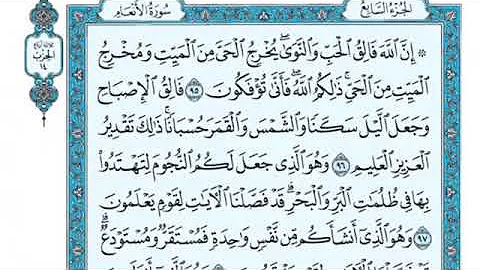 سُورَةُ الأَنْعَامِ
الجُزْءُ السَّابِعُ
۞ إِنَّ ٱللَّهَ فَالِقُ ٱلْحَبِّ وَٱلنَّوَىٰ يُخْرِجُ ٱلْحَيَّ مِنَ ٱلْمَيِّتِ وَمُخْرِجُ
ٱلْمَيِّتِ مِنَ ٱلْحَيِّ ذَٰلِكُمُ ٱللَّهُ فَأَنَّىٰ تُؤْفَكُونَ ٩٥ فَالِقُ ٱلْإِصْبَاحِ
وَجَعَلَ ٱلَّيْلَ سَكَنًا وَٱلشَّمْسَ وَٱلْقَمَرَ حُسْبَانًا ذَٰلِكَ تَقْدِيرُ
ٱلْعَزِيزِ ٱلْعَلِيمِ ٩٦ وَهُوَ ٱلَّذِي جَعَلَ لَكُمُ ٱلنُّجُومَ لِتَهْتَدُوا۟
بِهَا فِي ظُلُمَٰتِ ٱلْبَرِّ وَٱلْبَحْرِ قَدْ فَصَّلْنَا ٱلْآيَٰتِ لِقَوْمٍ يَعْلَمُونَ
٩٧ وَهُوَ ٱلَّذِي أَنشَأَكُم مِّن نَّفْسٍ وَٰحِدَةٍ فَمُسْتَقَرٌّ وَمُسْتَوْدَعٌ
الحِزْب
١٤